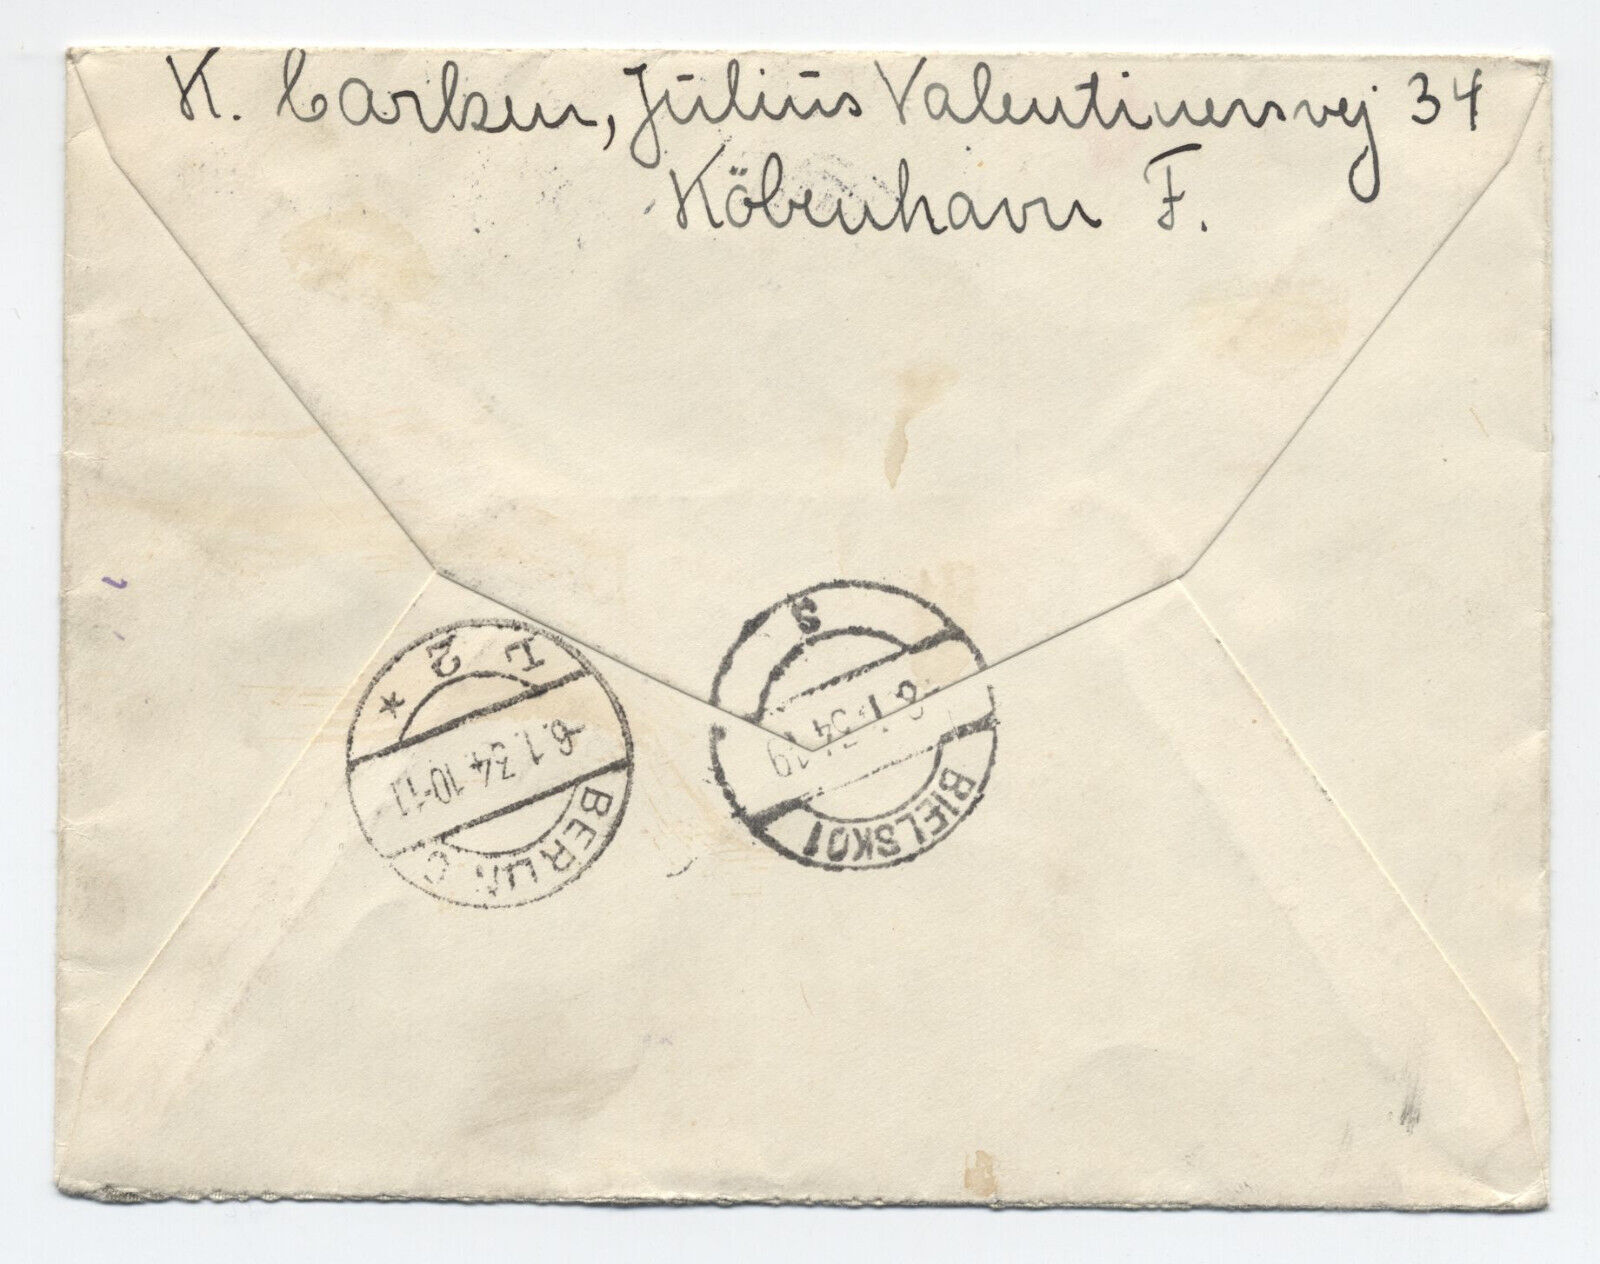 K. Carlsen, Julius Valentinersvej 34
Köbenhavn F.
L 2 *
6.1.34.10-11
BERLIN C
S
6.I.34.19
BIELSKO 1